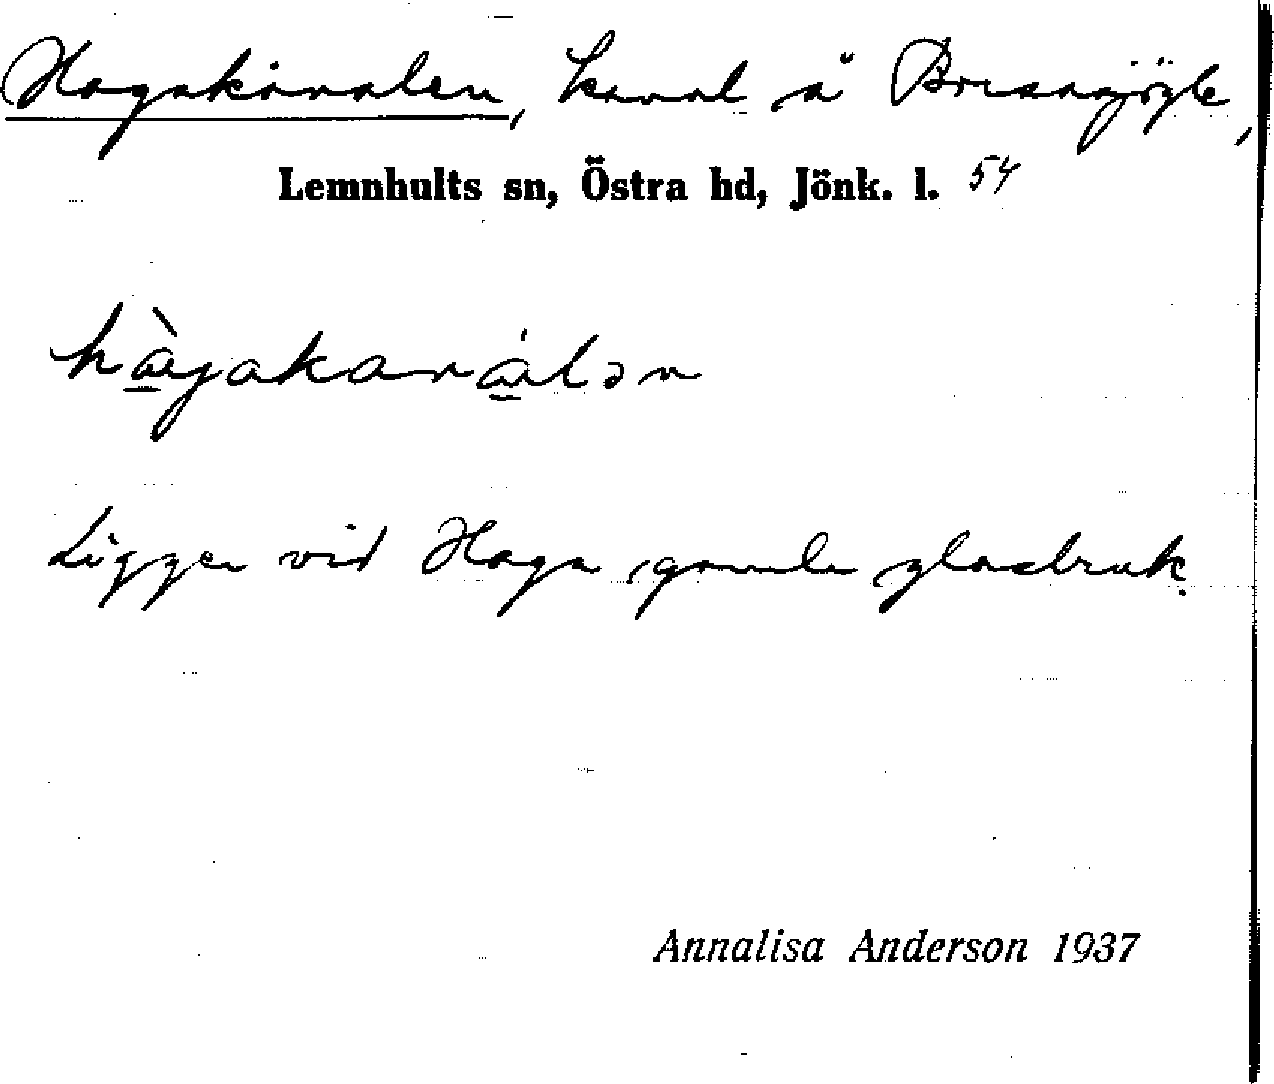 Hagakanalen, kanal å Brusanjögle,
Lemnhults sn, Östra hd, Jönk. l. 54
hàgakanálən
Ligger vid Haga, gamla glasbruk.
Annalisa Anderson 1937